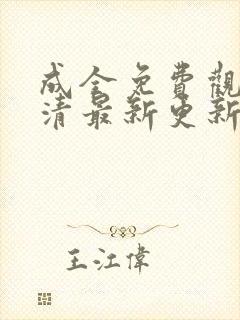 成全免費觀
清最新更新
王江偉